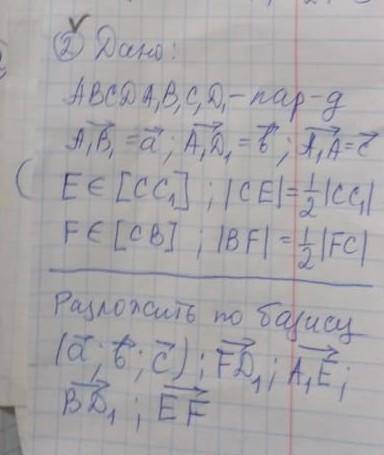 ② Дано:
ABCDA₁B₁C₁D₁ - пар-д
A₁B₁⃗ = a⃗ ; A₁D₁⃗ = b⃗ ; A₁A⃗ = c⃗
E ∈ [CC₁] ; |CE| = 1/2 |CC₁|
F ∈ [CB] ; |BF| = 1/2 |FC|
Разложить по базису
(a⃗ ; b⃗ ; c⃗) ; FD₁⃗ ; A₁E⃗ ;
BD₁⃗ ; EF⃗